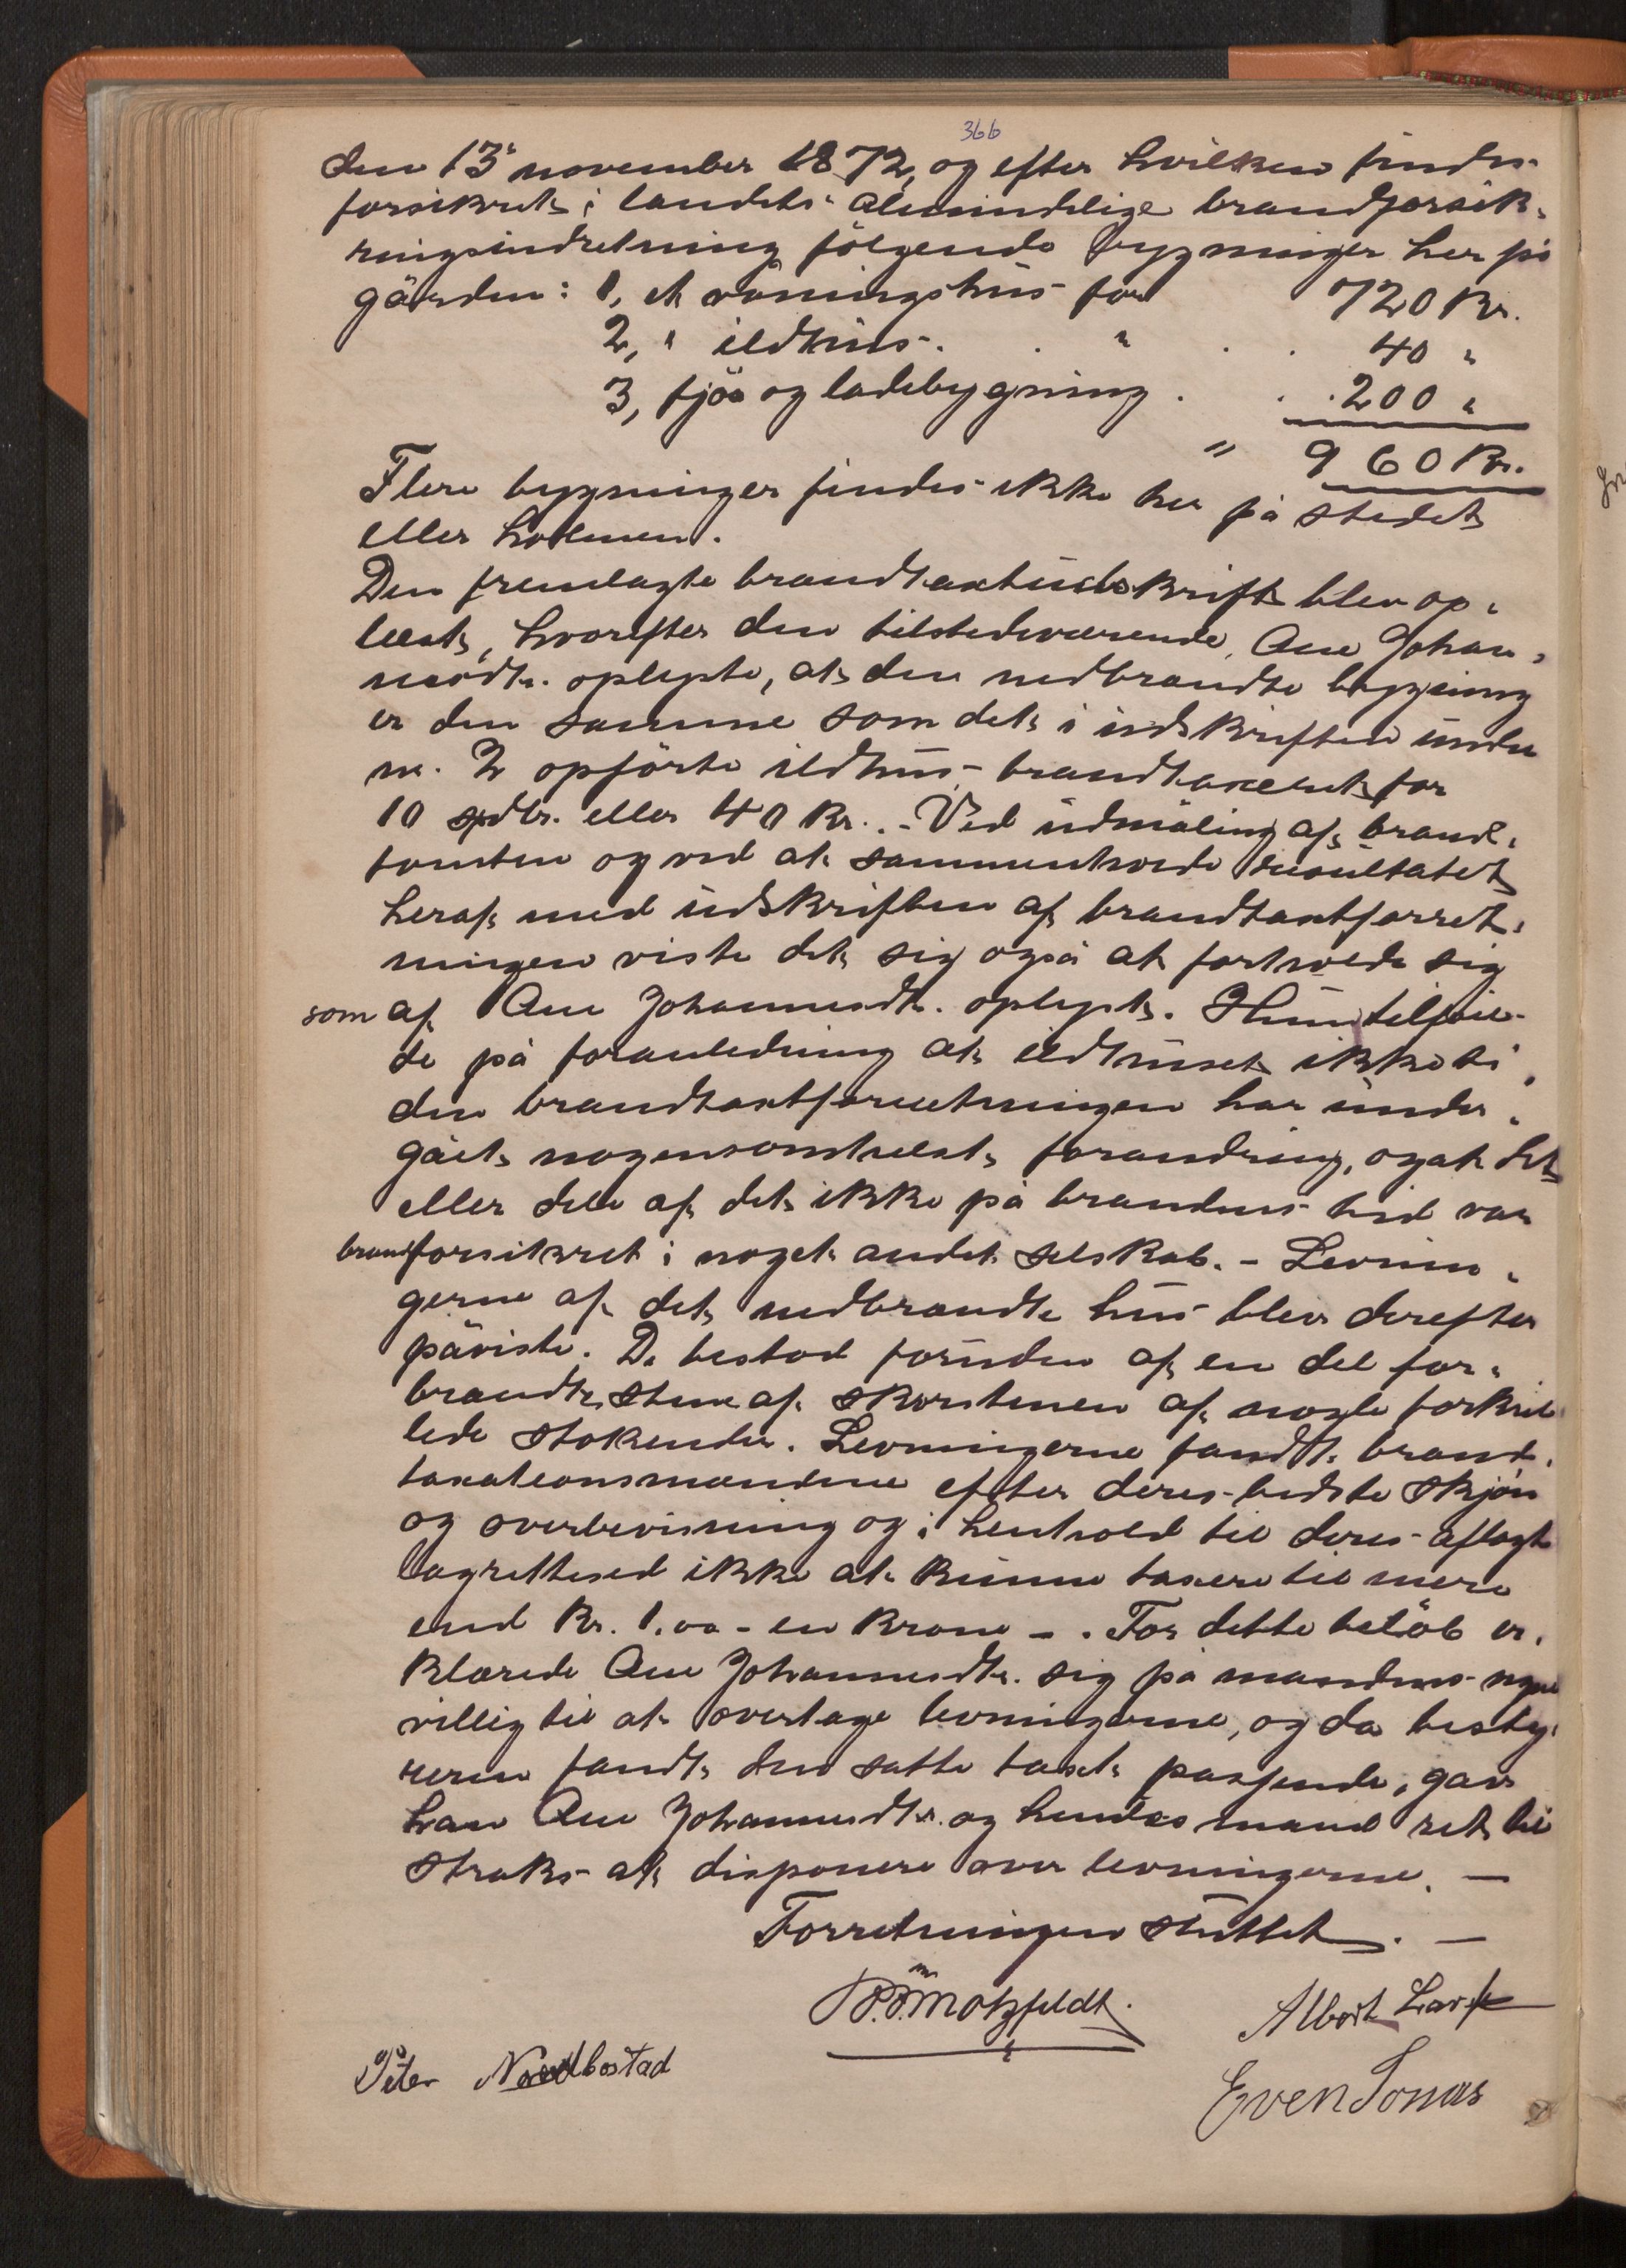 366
den 13 november 1872, og efter hvilken findes
forsikret i landets almindelige brandforsik-
ringsindretning følgende bygninger her på
gården: 1, et våningshus for 720 Kr.
2, " ildhus . . " . . 40 "
3, fjøs og ladebygning . . . 200 "
" 960 Kr.
Flere bygninger findes ikke her på stedet
eller holmen.
Den fremlagte brandtaxtudskrift blev op-
læst, hvorefter den tilstedeværende Ane Johan-
nesdtr. oplyste, at den nedbrandte bygning
er den samme som det i udskriften under
nr. 2 opførte ildhus brandtaxeret for
10 spdlr. eller 40 Kr. - Ved udmåling af brand-
tomten og ved at sammenholde resultatet
heraf med udskriften af brandtaxtforret-
ningen viste det sig også at forholde sig
som af Ane Johannesdtr. oplyst. Hun tilføie-
de på foranledning at ildhuset ikke si-
den brandtaxtforretningen har under-
gået nogensomhelst forandring, og at det
eller dele af det ikke på brandens tid var
brandforsikret i noget andet selskab. - Levnin-
gerne af det nedbrandte hus blev derefter
påviste. De bestod foruden af en del for-
brandte stene af skorstenen af nogle forkul-
lede stokender. Levningerne fandt brand-
taxationsmændene efter deres bedste skjøn
og overbevisning og i henhold til deres aflagte
lagrettesed ikke at kunne taxere til mere
end Kr. 1.00 - en Krone - . For dette beløb er-
klærede Ane Johannesdtr. sig på mandens vegne
villig til at overtage levningerne, og da besty-
reren fandt den satte taxt passende, gav
han Ane Johannesdtr. og hendes mand ret til
straks at disponere over levningerne. -
Forretningen sluttet. -
Motzfeldt.
Albert
Peter Nordbostad
Even Jonas